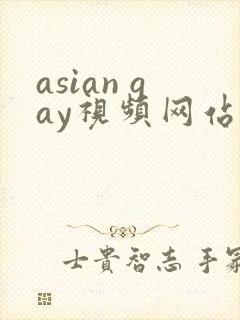 asian g
ay視頻网佔
士貴智志手冢